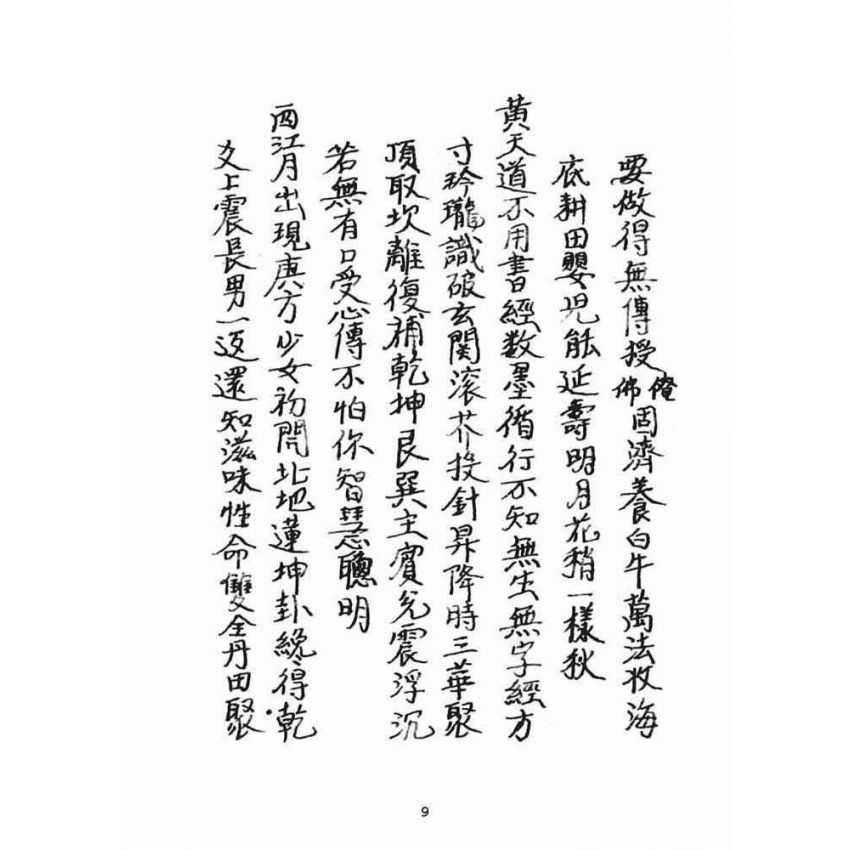 要做得無傳授佛俺固濟養白牛萬法收海
底耕田嬰児能延壽明月花稍一樣秋
黃天道不用書經数墨循行不知無生無字經方
寸玲瓏識破玄関滚芥投針昇降時三華聚
頂取坎離復補乾坤艮巽主賓兊震浮沉
若無有口受心傳不怕你智慧聰明
西江月出現庚方少女初開北地蓮坤卦纔得乾
爻上震長男一返還知滋味性命雙全丹田聚
9